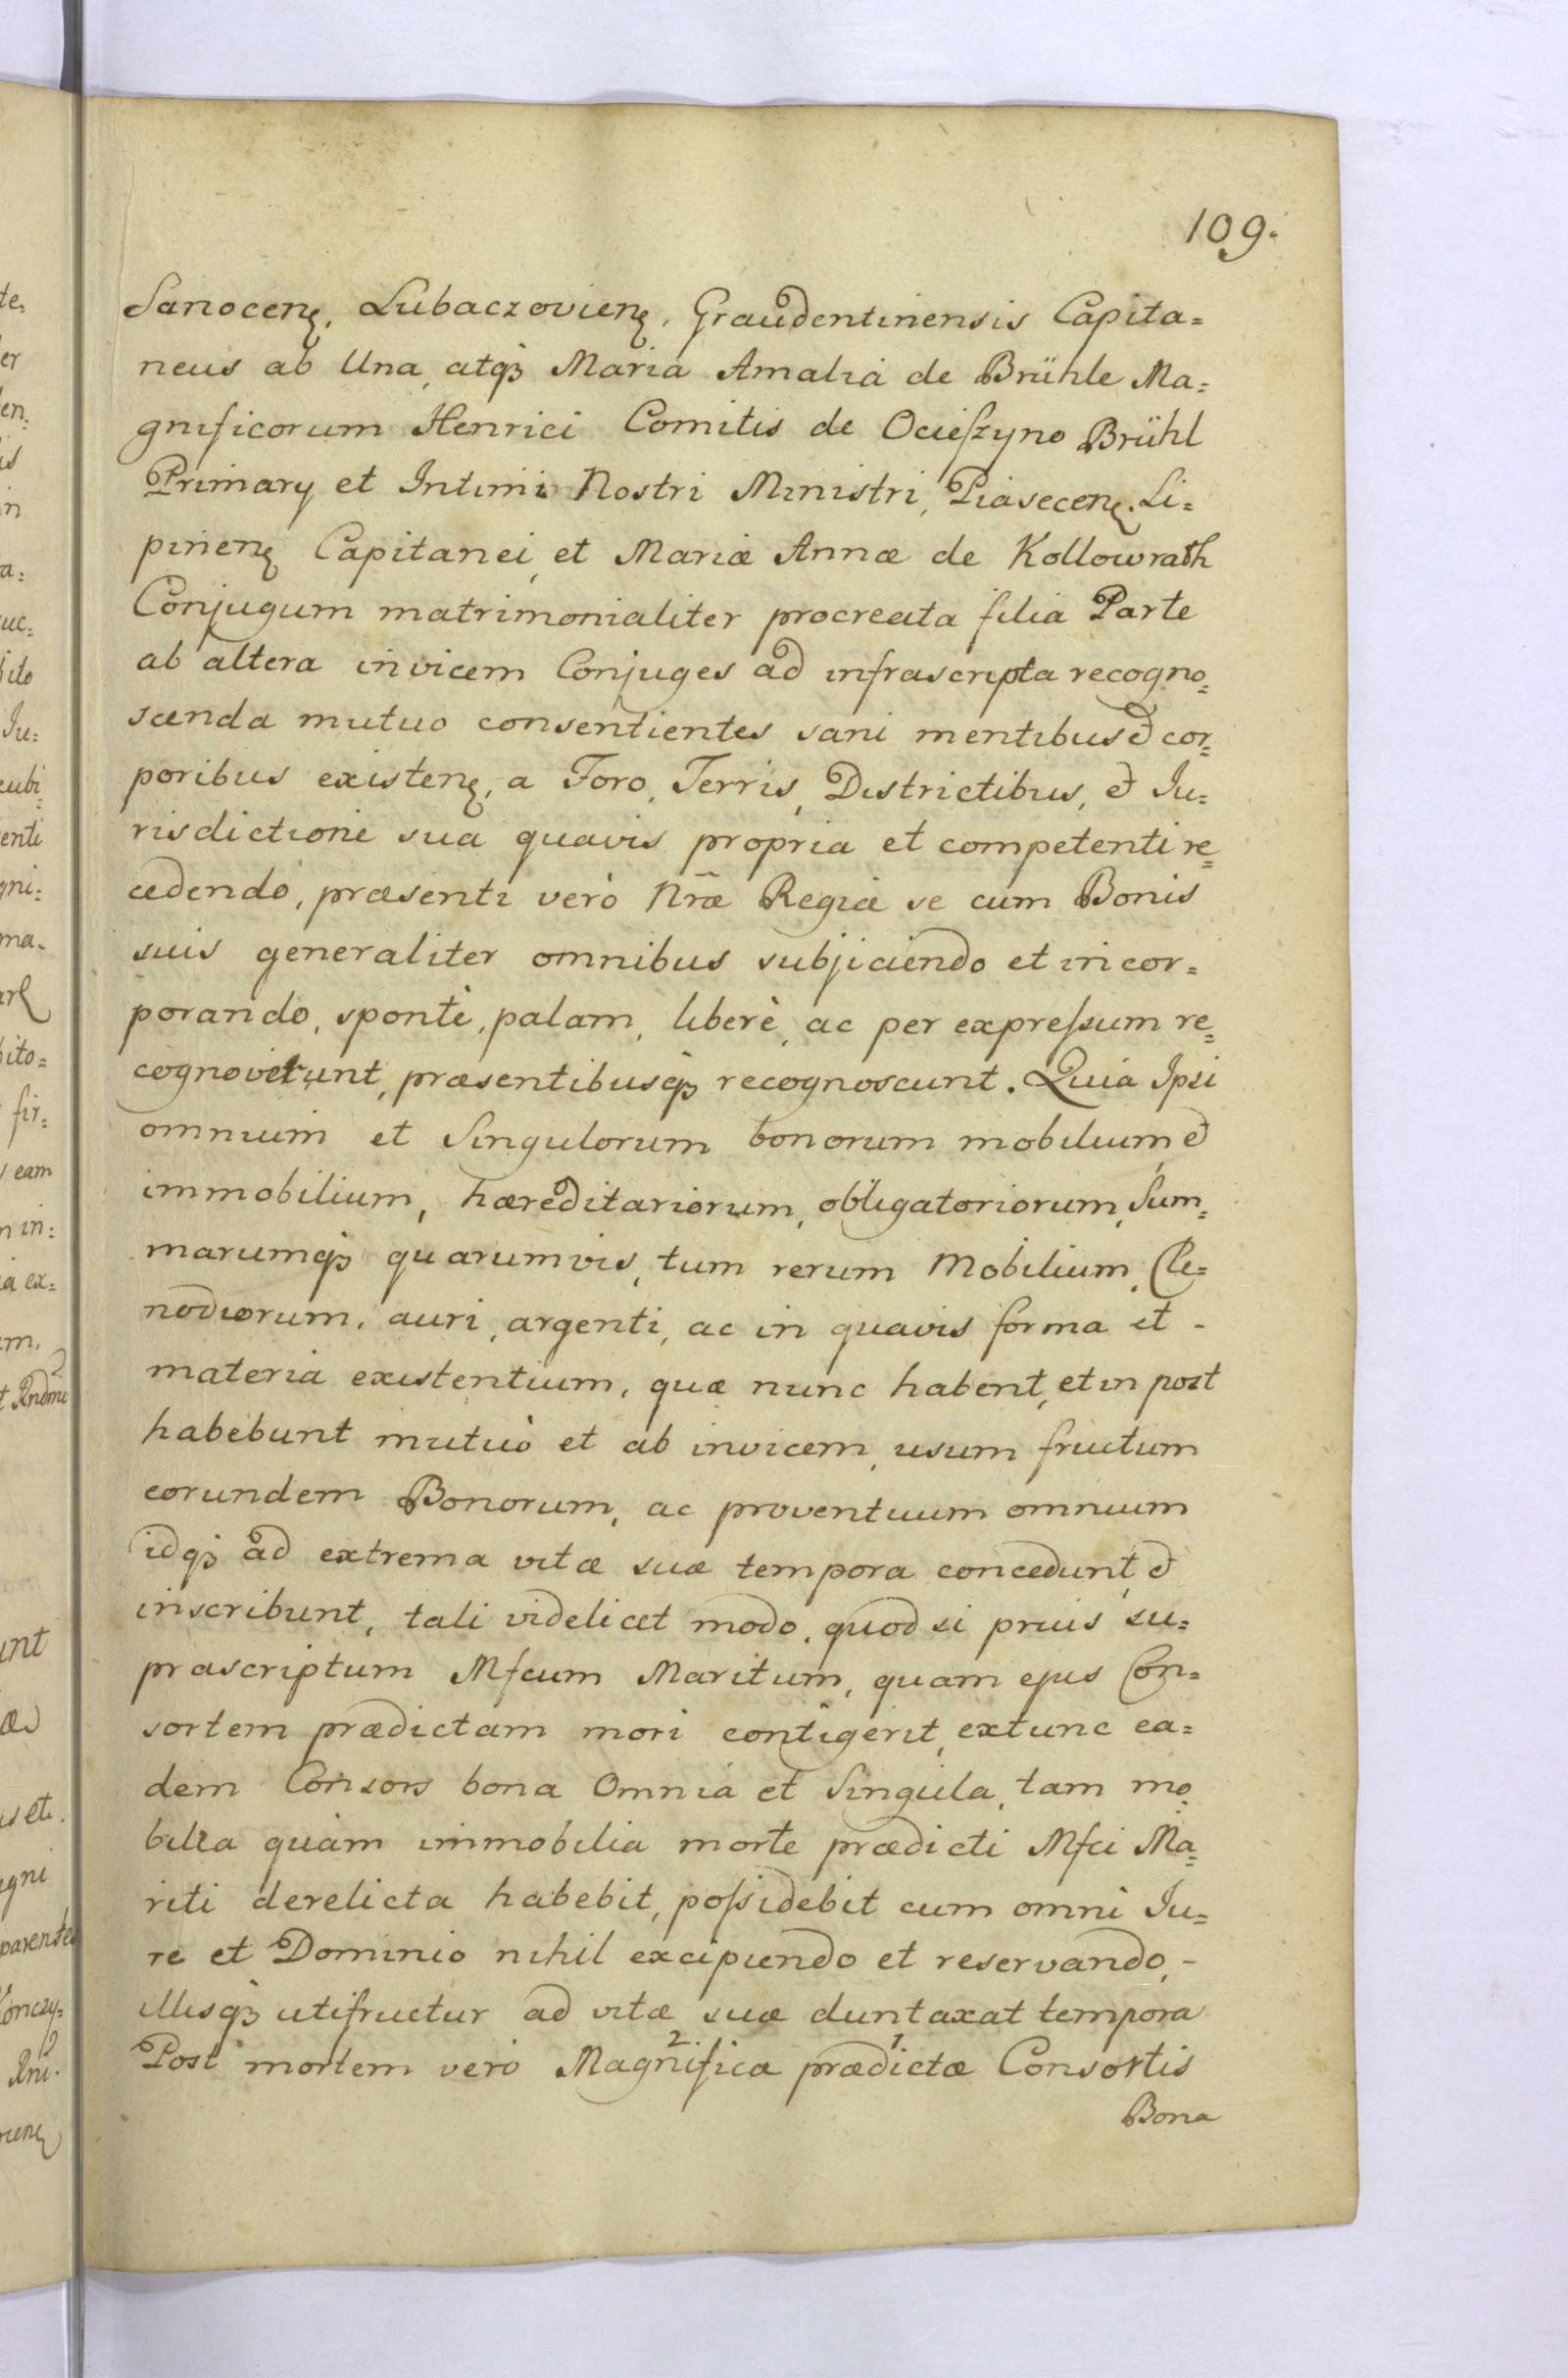 109.
Sanocen͂, Lubaczovien͂, Graudentinensis Capita=
neus ab Una, atq; Maria Amalia de Brühle Ma=
gnificorum Henrici Comitis de Ocieſzyno Brühl
Primary et Intimi Nostri Ministri, Piasecen͂. Li=
pinen͂ Capitanei, et Mariæ Annæ de Kollowrath
Conjugum matrimonialiter procreata filia Parte
ab altera invicem Conjuges ad infrascripta recogno=
scenda mutuo consentientes sani mentibus & cor=
poribus existen͂, a Foro, Terris, Districtibus, & Iu=
risdictione sua quavis propria et competenti re=
cedendo, præsenti verò Nr̃æ Regiæ se cum Bonis
suis generaliter omnibus subjiciendo et incor=
porando, spontè, palam, liberè, ac per expreſsum re=
cognoverunt, præsentibusq; recognoscunt. Quia Ipsi
omnium et Singulorum bonorum mobilium &
immobilium, hæreditariorum, obligatoriorum, Sum=
marumq; quarumvis, tum rerum Mobilium, Cle=
nodiorum, auri, argenti, ac in quavis forma et -
materia existentium, quæ nunc habent, et in post
habebunt mutuò et ab invicem, usum fructum
eorundem Bonorum, ac proventuum omnium
idq; ad extrema vitæ suæ tempora concedunt, &
inscribunt, tali videlicet modo, quod si prius su=
prascriptum Mfcum Maritum, quam ejus Con=
sortem prædictam mori contigerit, extunc ea=
dem Consors bona Omnia et Singula, tam mo=
bilia quàm immobilia morte prædicti Mfci Ma=
riti derelicta habebit, poſsidebit cum omni Iu=
re et Dominio nihil excipiendo et reservando, -
illisq; utifruetur ad vitæ suæ duntaxat tempora
Post mortem verò Magnificæ 2. prædictæ 1. Consortis
Bona